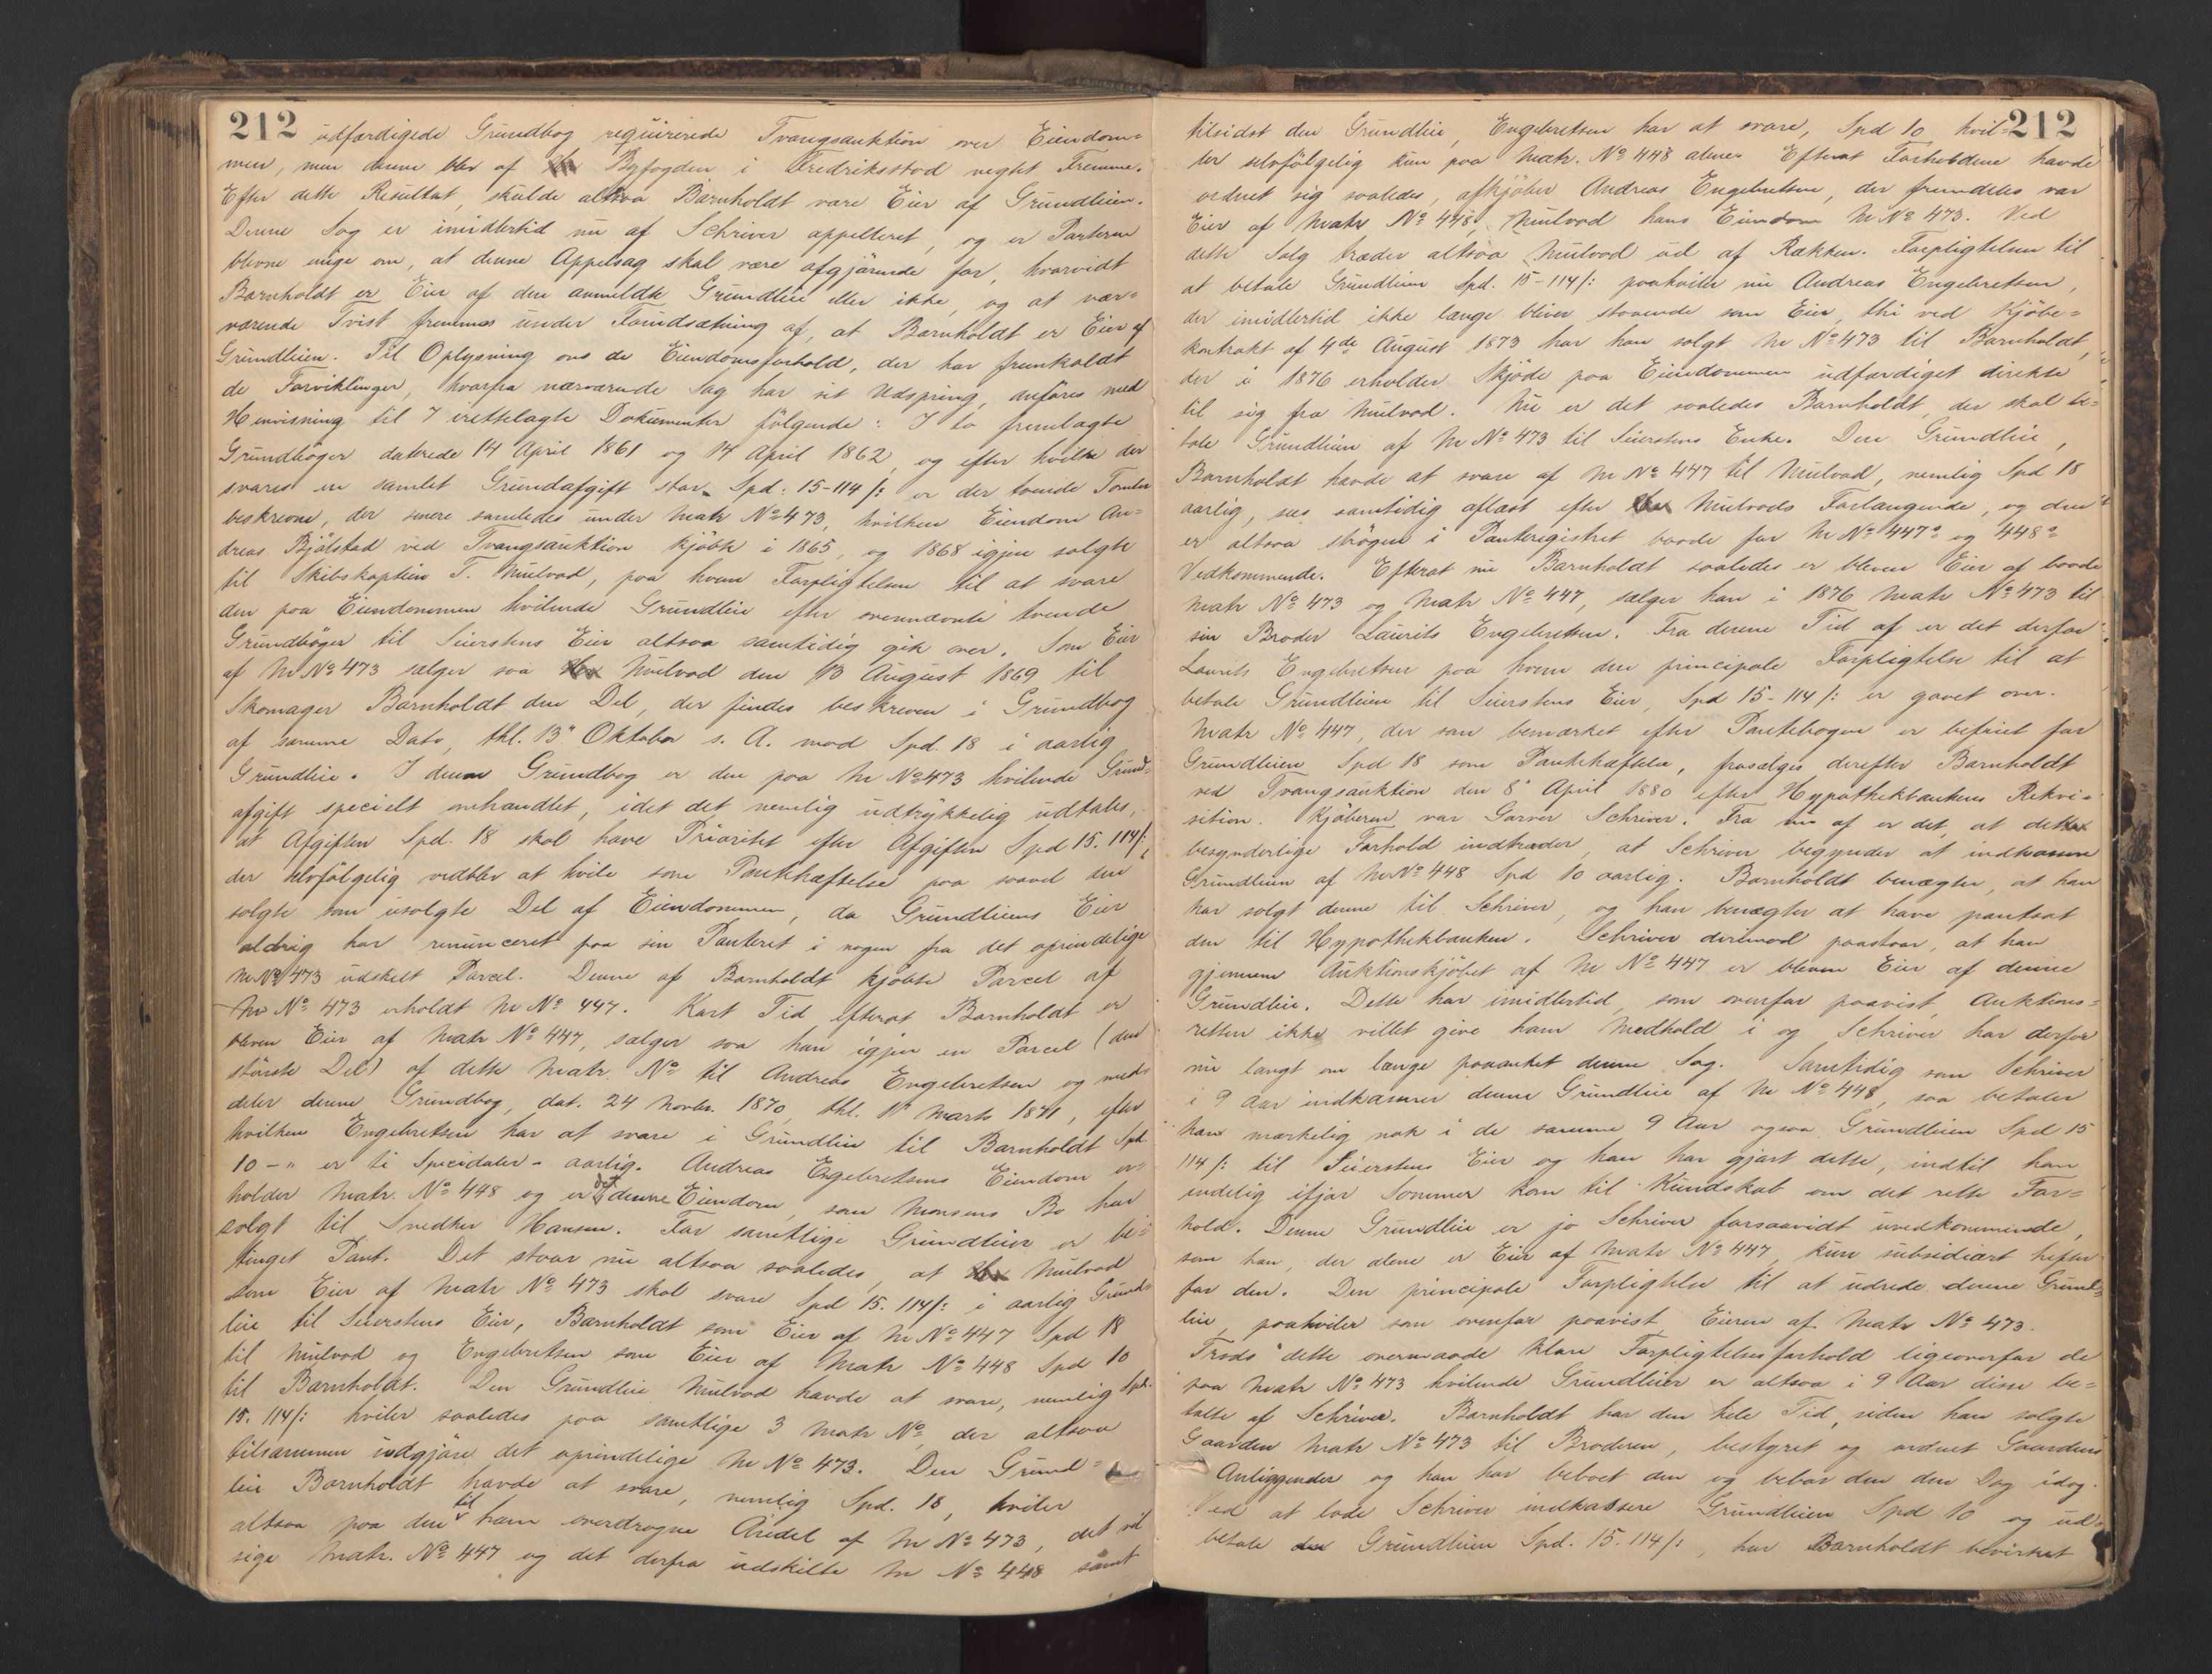 212
udfærdigede Grundbog requirerede Tvangsauktion over Eiendom=
men, men denne blev af Byfogden i Fredriksstad negtet Fremme.
Efter dette Resultat, skulde altsaa Barnholdt være Eier af Grundleien.
Denne Sag er imidlertid nu af Schriver appelleret, og er Parterne
blevne enige om, at denne Appelsag skal være afgjörende for, hvorvidt
Barnholdt er Eier af den anmeldte Grundleie eller ikke, og at nær=
værende Tvist fremmes under Forudsætning af, at Barnholdt er Eier af
Grundleien. Til Oplysning om de Eiendomsforhold, der har fremkaldt
de Forviklinger, hvorfra nærværende Sag har sit Udspring, anføres med
Henvisning til 7 irettelagte Dokumenter fölgende: I to fremlagte
Grundböger daterede 14 April 1861 og 14 April 1862, og efter hvilke der
svares en samlet Grundafgift stor Spd. 15-114 /: er der tvende Tomter
beskrevne, der senere samledes under Matr No 473, hvilken Eiendom An=
dreas Bjölstad ved Tvangsauktion kjöbte i 1865, og 1868 igjen solgte
til Skibskaptein T. Mulvad, paa hvem Forpligtelsen til at svare
den paa Eiendommen hvilende Grundleie efter ovennævnte tvende
Grundböger til Seierstens Eier altsaa samtidig gik over. Som Eier
af M No 473 sælger saa Mulvad den 13 August 1869 til
Skomager Barnholdt den Del, der findes beskreven i Grundbog
af samme Dato, thl. 13" Oktober s. A. mod Spd. 18 i aarlig
Grundleie. I denne Grundbog er den paa M No 473 hvilende Grund=
afgift specielt omhandlet, idet det nemlig udtrykkelig udtales,
at Afgiften Spd. 18 skal have Prioritet efter Afgiften Spd 15. 114/:,
der selvfölgelig vedblev at hvile som Panthæftelse paa saavel den
solgte som usolgte Del af Eiendommen, da Grundleiens Eier
aldrig har renunceret paa sin Panteret i nogen fra det oprindelige
M No 473 udskilt Parcel. Denne af Barnholdt kjöbte Parcel af
M No 473 erholdt M No 447. Kort Tid efterat Barnholdt er
bleven Eier af Matr No 447, sælger saa han igjen en Parcel (den
störste Del) af dette Matr. No til Andreas Engebretsen og med=
deler denne Grundbog, dat. 24 Novbr. 1870, thl. 1" Marts 1871, efter
hvilken Engebretsen har at svare i Grundleie til Barnholdt Spd.
10 - " er ti Speciedaler - aarlig. Andreas Engebretsens Eiendom er=
holder Matr. No 448 og er det denne Eiendom, som Monsens Bo har
solgt til Snedker Hansen. For samtlige Grundleier er be=
tinget Pant. Det staar nu altsaa saaledes, at Mulvad
som Eier af Matr No 473 skal svare Spd 15. 114/: i aarlig Grund=
leie til Seierstens Eier, Barnholdt som Eier af M No 447 Spd 18
til Mulvad og Engebretsen som Eier af Matr No 448 Spd 10
til Barnholdt. Den Grundleie Mulvad havde at svare, nemlig Spd.
15. 114/: hviler saaledes paa samtlige 3 Matr No, der altsaa
tilsammen udgjöre det oprindelige M No 473. Den Grund=
leie Barnholdt havde at svare, nemlig Spd. 18, hviler
altsaa paa den til ham overdragne Andel af M No 473, det vil
sige Matr. No 447 og det derfra udskilte M No 448 samt
212
tilsidst den Grundleie, Engebretsen har at svare, Spd 10 hvil=
ler selvfölgelig kun paa Matr. No 448 alene. Efterat Forholdene havde
ordnet sig saaledes, afkjöber Andreas Engebretsen, der fremdeles var
Eier af Matr No 448, Mulvad hans Eiendom M No 473. Ved
dette Salg træder altsaa Mulvad ud af Rækken. Forpligtelsen til
at betale Grundleien Spd. 15-114/: paahviler nu Andreas Engebretsen,
der imidlertid ikke længe bliver staaende som Eier, thi ved Kjöbe=
kontrakt af 4de August 1873 har han solgt M No 473 til Barnholdt,
der i 1876 erholder Skjöde paa Eiendommen udfærdiget direkte
til sig fra Mulvad. Nu er det saaledes Barnholdt, der skal be=
tale Grundleien af M No 473 til Seierstens Enke. Den Grundleie,
Barnholdt havde at svare af M No 447 til Mulvad, nemlig Spd 18
aarlig, sees samtidig aflæst efter Mulvads Forlangende, og den
er altsaa ströget i Panteregistret baade for M No 447s og 448s
Vedkommende. Efterat nu Barnholdt saaledes er bleven Eier af baade
Matr No 473 og Matr No 447, sælger han i 1876 Matr No 473 til
sin Broder Laurits Engebretsen. Fra denne Tid af er det derfor
Laurits Engebretsen paa hvem den principale Forpligtelse til at
betale Grundleien til Seierstens Eier, Spd 15-114/: er gaaet over.
Matr No 447, der som bemærket efter Pantebogen er befriet for
Grundleien Spd 18 som Panthæftelse, frasælges derefter Barnholdt
ved Tvangsauktion den 8" April 1880 efter Hypothekbankens Rekvi=
sition. Kjöberen var Garver Schriver. Fra nu af er det, at det
besynderlige Forhold indtræder, at Schriver begynder at indkassere
Grundleien af M No 448 Spd 10 aarlig. Barnholdt benægter, at han
har solgt denne til Schriver, og han benægter at have pantsat
den til Hypothekbanken. Schriver derimod paastaar, at han
gjennem Auktionskjöbet af M No 447 er bleven Eier af denne
Grundleie. Dette har imidlertid, som ovenfor paavist, Auktions=
retten ikke villet give ham Medhold i og Schriver har derfor
nu langt om længe paaanket denne Sag. Samtidig som Schriver
i 9 Aar indkasserer denne Grundleie af M No 448, saa betaler
han mærkelig nok i de samme 9 Aar ogsaa Grundleien Spd 15
114/: til Seierstens Eier og han har gjort dette, indtil han
endelig ifjor Sommer kom til Kundskab om det rette For=
hold. Denne Grundleie er jo Schriver forsaavidt uvedkommende,
som han, der alene er Eier af Matr No 447, kun subsidiært hefter
for den. Den principale Forpligtelse til at udrede denne Grund=
leie, paahviler som ovenfor paavist Eieren af Matr No 473.
Trods dette overmaade klare Forpligtelsesforhold ligeoverfor de
paa Matr No 473 hvilende Grundleier er altsaa i 9 Aar disse be=
talte af Schriver. Barnholdt har den hele Tid, siden han solgte
Gaarden Matr No 473 til Broderen, bestyret og ordnet Gaardens
Anliggender og han har beboet den og bebor den den Dag idag.
Ved at lade Schriver indkassere Grundleien Spd 10 og ud=
betale Grundleien Spd. 15. 114/:, har Barnholdt bevirket